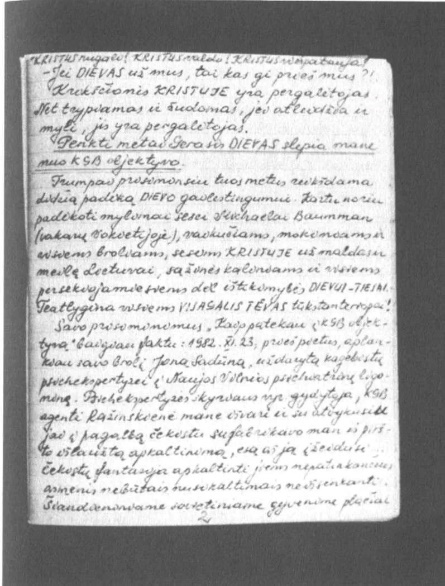 KRISTUS nugalėjo! KRISTUS valdo! KRISTUS viešpatauja!
– Jei DIEVAS už mus, tai kas gi prieš mus?!
Krikščionis KRISTUJE yra pergalėtojas.
Net trypiamas ir žudomas, jei atleidžia ir
myli, jis yra pergalėtojas.
Penkti metai Gerasis DIEVAS slepia mane
nuo KGB objektyvo.
Trumpai prisiminsiu tuos metus reikšdama
didžią padėką DIEVO gailestingumui. Kartu noriu
padėkoti mylimai sesei Michaelai Baumman
(vakarų Vokietijoje), vaikučiams, mokiniams ir
visiems broliams, sesėms KRISTUJE už maldas ir
meilę Lietuvai, sąžinės kaliniams ir visiems
persekiojamiesiems dėl ištikimybės DIEVUI-TIESAI.
Teatlygina visiems VISAGALIS TĖVAS tūkstanteriopai!
Savo prisiminimus „Kaip patekau į KGB objek-
tyvą" baigiau faktu: 1982.XI.23, prieš pietus, aplan-
kiau savo brolį Joną Sadūną, uždarytą kagebistų
psichekspertizei į Naujos Vilnios psichiatrinę ligo-
ninę. Psichekspertizės skyriaus vyr. gydytoja, KGB
agentė Ražinskienė mane išvarė ir su atvykusiu
jai į pagalbą čekistu sufabrikavo man iš pirš-
to išlaužtą apkaltinimą, esą aš ją įžeidusi...
čekistų fantazija apkaltinti jiems nepatinkančius
asmenis nebūtais nusikaltimais neišsenkanti.
Šiandieniniame sovietiniame gyvenime plačiai
2